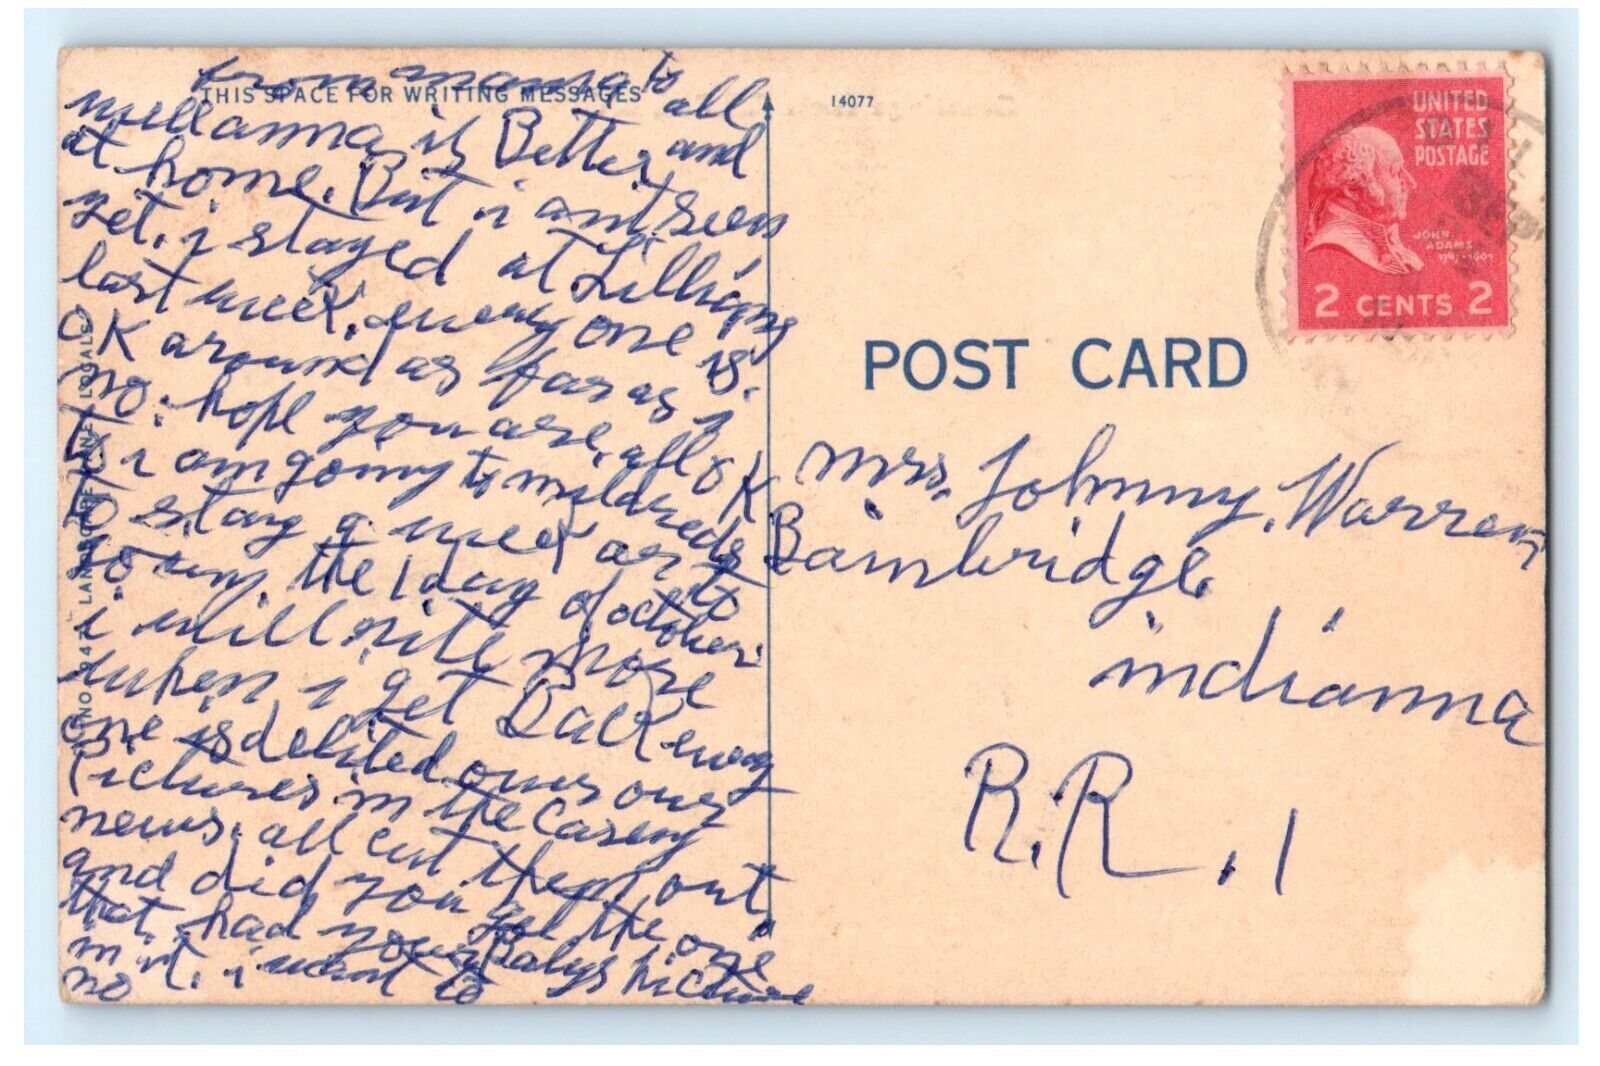 THIS SPACE FOR WRITING MESSAGES
from mama to all
is Better and
at home. But i aint Seen
yet. i stayed at
last week, every one is.
OK around as far as i
no. hope you are all OK
i am going to mildreds
to stay a week or to
the 1 day of october.
i will rite more
when i get Back every
one is delited over our
Pictures in the Casey
news. all cut them out
and did you get the one
that had your Babys Picture
in it. i want to
no
NO. 94 LOCALS
14077
UNITED
STATES
POSTAGE
JOHN
ADAMS
1797-1801
2 CENTS 2
POST CARD
Mrs. Johnny. Warren
Bainbridge.
indianna
R.R. 1